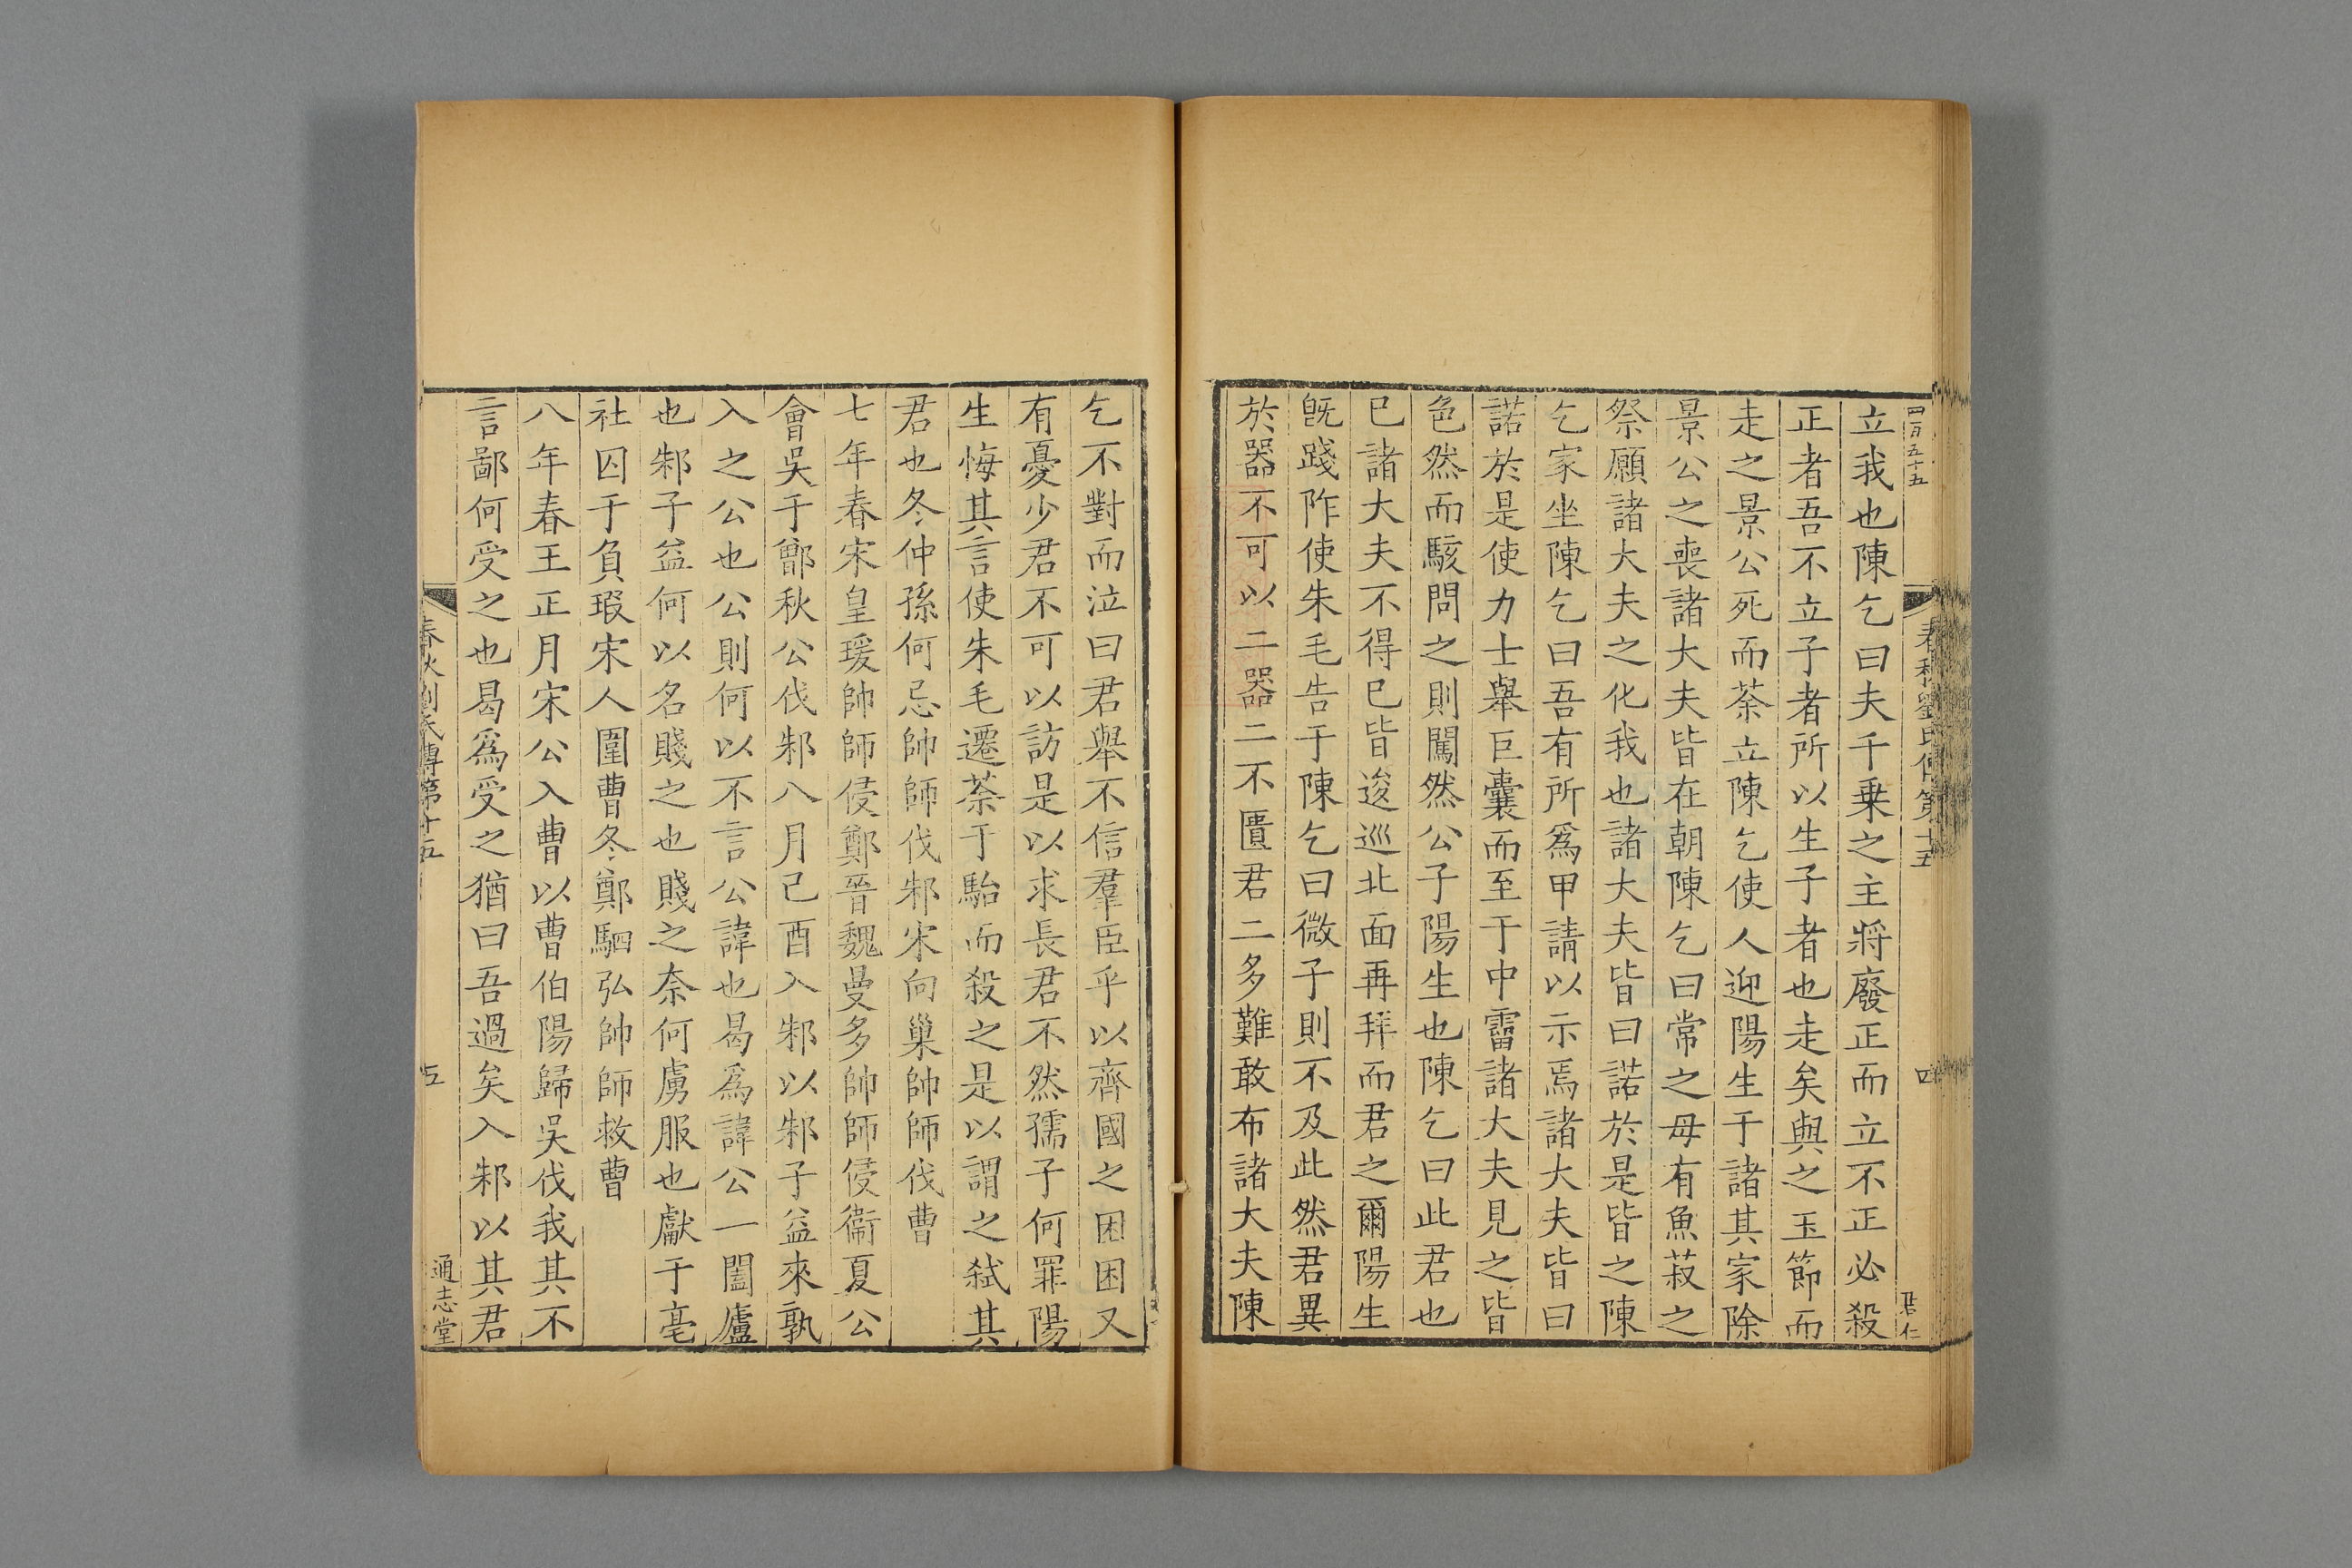 四百五十五
春秋劉氏傳第十五
四
君仁
立我也陳乞曰夫千乗之主將廢正而立不正必殺
正者吾不立子者所以生子者也走矣與之玉節而
走之景公死而荼立陳乞使人迎陽生于諸其家除
景公之喪諸大夫皆在朝陳乞曰常之母有魚菽之
祭願諸大夫之化我也諸大夫皆曰諾於是皆之陳
乞家坐陳乞曰吾有所爲甲請以示焉諸大夫皆曰
諾於是使力士舉巨囊而至于中霤諸大夫見之皆
色然而駭問之則闖然公子陽生也陳乞曰此君也
已諸大夫不得已皆逡巡北面再拜而君之爾陽生
旣踐阼使朱毛告于陳乞曰微子則不及此然君異
於器不可以二器二不匱君二多難敢布諸大夫陳
乞不對而泣曰君舉不信羣臣乎以齊國之困困又
有憂少君不可以訪是以求長君不然孺子何罪陽
生悔其言使朱毛遷荼于駘而殺之是以謂之弑其
君也冬仲孫何忌帥師伐邾宋向巢帥師伐曹
七年春宋皇瑗帥師侵鄭晉魏曼多帥師侵衞夏公
會吳于鄫秋公伐邾八月己酉入邾以邾子益來孰
入之公也公則何以不言公諱也曷爲諱公一闔廬
也邾子益何以名賤之也賤之奈何虜服也獻于亳
社囚于負瑕宋人圍曹冬鄭駟弘帥師救曹
八年春王正月宋公入曹以曹伯陽歸吳伐我其不
言鄙何受之也曷爲受之猶曰吾過矣入邾以其君
春秋劉氏傳第十五
五
通志堂